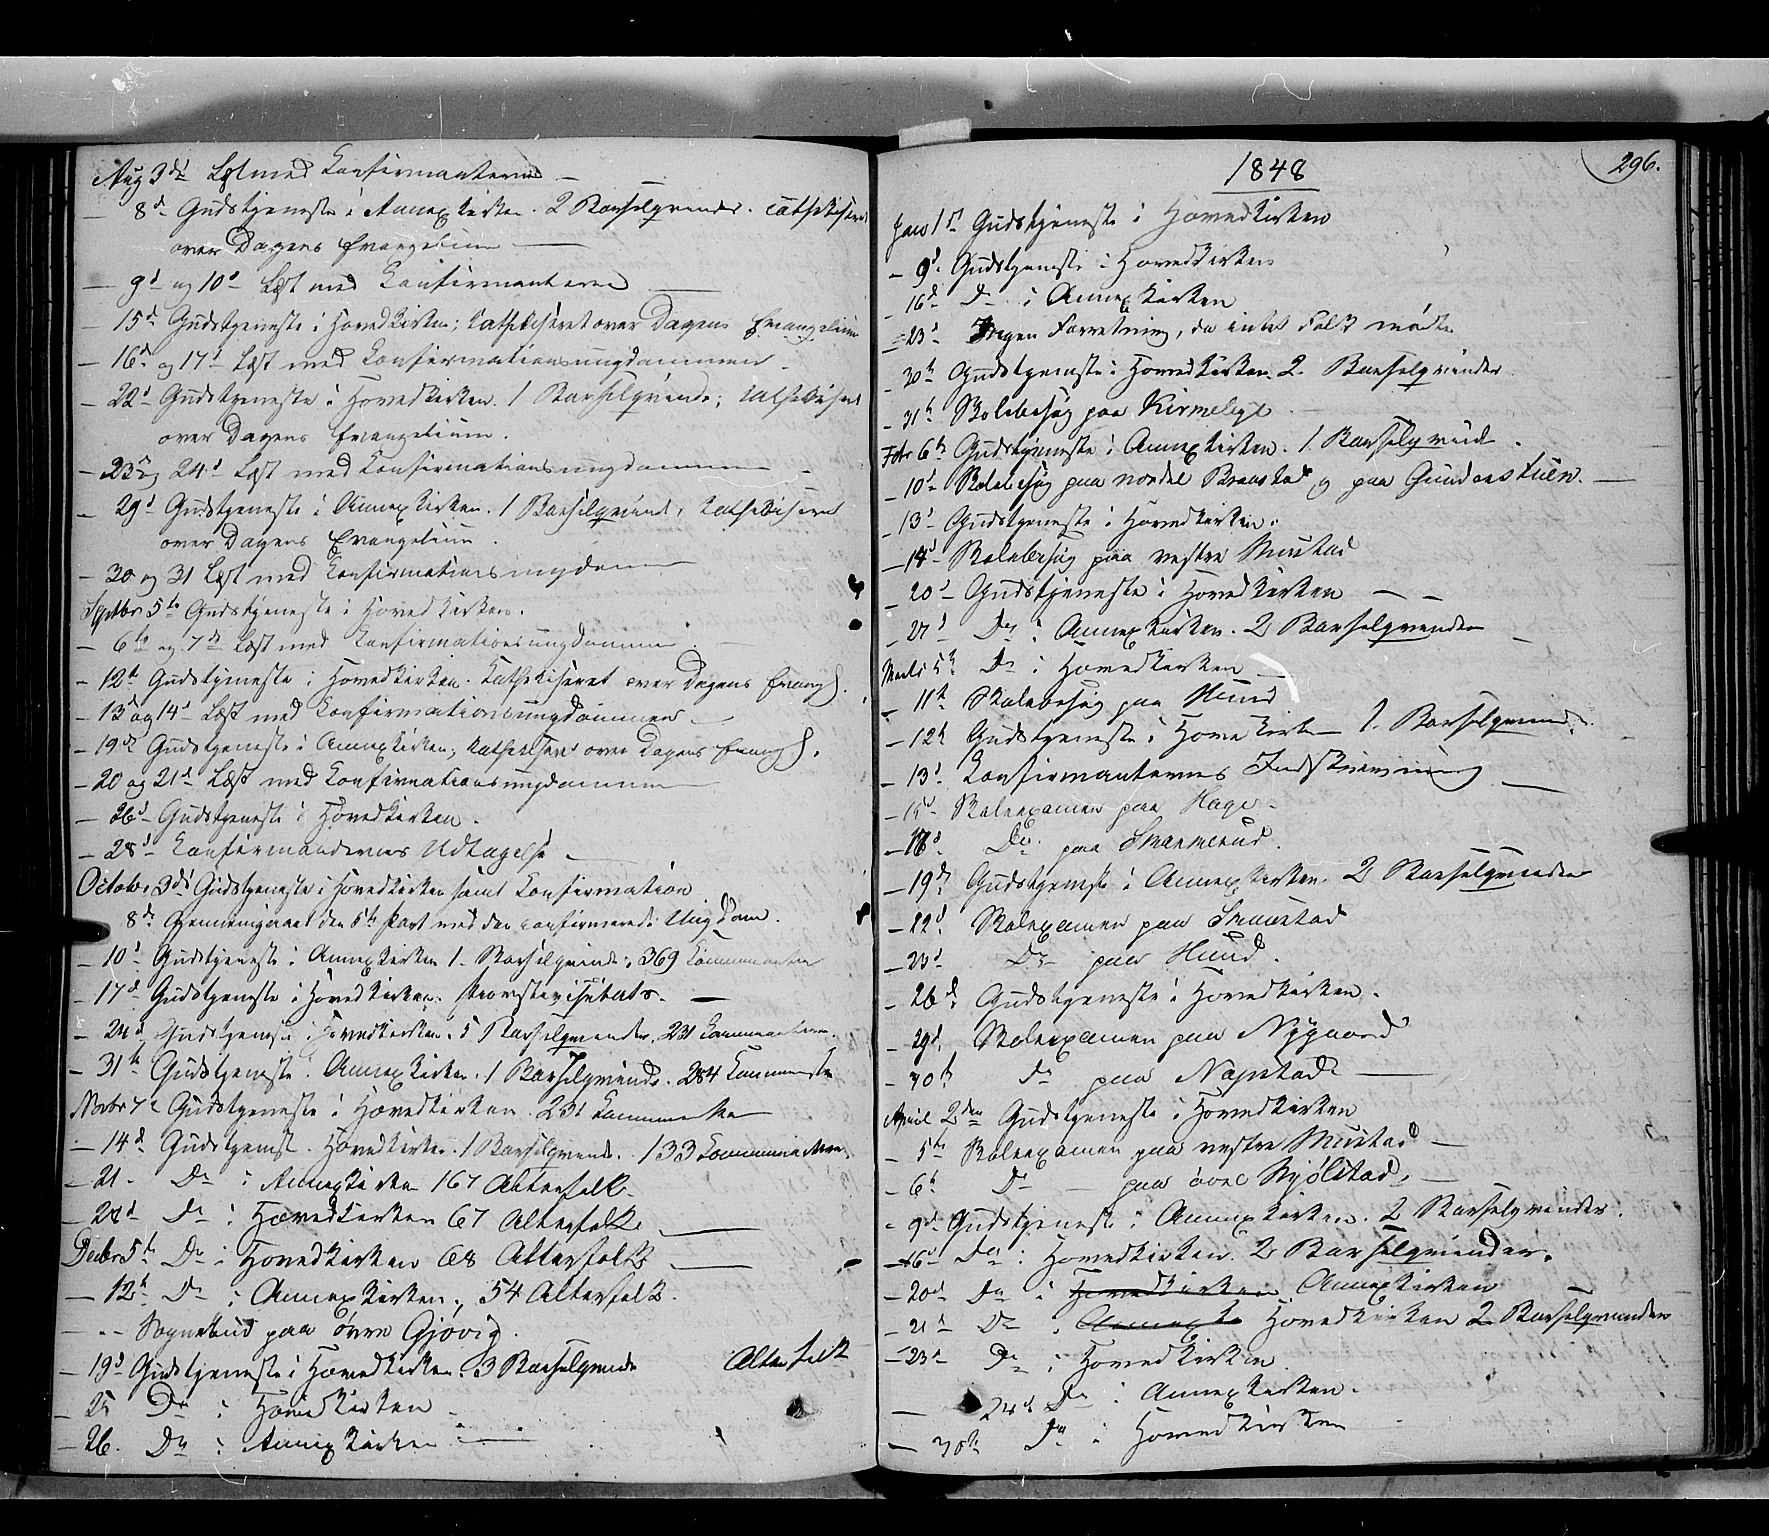 Aug 3di Læst med Confirmanterne
- 8d Gudstjeneste i Annexkirken. 2 Barselqvinder. Cathekiseret
over Dagens Evangelium
- 9d og 10d Læst med Confirmanterne
- 15d Gudstjeneste i Hovedkirken; Kathekiseret over Dagens Evangelium
- 16d og 17d Læst med Confirmationsungdommen
- 22d Gudstjeneste i Hovedkirken. 1 Barselqvinde; Kathekiseret
over Dagens Evangelium.
- 23d og 24d Læst med Confirmationsungdommen
- 29d Gudstjeneste i Annexkirken. 1 Barselqvinde, Kathekiseret
over Dagens Evangelium.
- 30 og 31 Læst med Confirmationsungdommen
Septbr 5te Gudstjeneste i Hovedkirken.
- 6te og 7de Læst med Confirmationsungdommen
- 12t Gudstjeneste i Hovedkirken. Kathekiseret over Dagens Evang.
- 13d og 14d Læst med Confirmationsungdommen
- 19de Gudstjeneste i Annexkirken; Kathekiseret over Dagens Evang.
- 20 og 21d Læst med Confirmationsungdommen
- 26d Gudstjeneste i Hovedkirken.
- 28d Confirmandernes Udtagelse
October 3di Gudstjeneste i Hovedkirken samt Confirmation
8de Gjennemgaaet den 5te Part med den confirmerede Ungdom.
- 10d Gudstjeneste i Annexkirken 1 Barselqvinde; 369 Communicanter
- 17d Gudstjeneste i Hovedkirken. Provstevisitats.
- 24d Gudstjeneste i Hovedkirken. 5 Barselqvinder. 231 Communicanter.
- 31te Gudstjeneste i Annexkirken. 1 Barselqvinde. 284 Communicanter
Novbr 7e Gudstjeneste i Hovedkirken 231 Communicanter
- 14d Gudstjeneste i Hovedkirken. 1 Barselqvinde. 133 Communicanter.
- 21. Do i Annexkirken 167 Altersfolk.
- 28d Do i Hovedkirken 67 Altersfolk.
Decbr 5te Do i Hovedkirken 68 Altersfolk
- 12te Do i Annexkirken, 54 Altersfolk.
- -- Sognebud paa øvre Gjøvig.
- 19d Gudstjeneste i Hovedkirken. 3 Barselqvinder Altersfolk
- 25 Do i Hovedkirken
- 26. Do i Annexkirken
296.
1848
Jan 1st Gudstjeneste i Hovedkirken
- 9d. Gudstjeneste i Hovedkirken
- 16d Do i Annexkirken
- 23d Ingen Forretning, da intet Folk mødte
- 30te Gudstjeneste i Hovedkirken. 2 Barselqvinder
- 31te Skolebesøg paa
Febr 6te Gudstjeneste i Annexkirken. 1 Barselqvinde.
- 10d Skolebesøg paa nordre Braastad og paa
- 13d Gudstjeneste i Hovedkirken.
- 14d Skolebesøg paa vestre Mustad
- 20d Gudstjeneste i Hovedkirken
- 27d Do i Annexkirken. 2 Barselqvinder
Marts 5te Do i Hovedkirken
- 11te Skolebesøg paa Hund
- 12te Gudstjeneste i Hovedkirken 1. Barselqvinde.
- 13d Confirmanternes Indskrivning
- 15d Skoleexamen paa Hage.
- 18d Do paa
- 19de Gudstjeneste i Annexkirken. 2 Barselqvinder
- 22d Skolexamen paa
- 23d Do paa Hund.
- 26d. Gudstjeneste i Hovedkirken.
- 29d. Skoleexamen paa Nygaard
- 30te do paa
April 2den Gudstjeneste i Hovedkirken
- 5te Skoleexamen paa vestre Mustad
- 6te Do paa øvre
- 9d Gudstjeneste i Annexkirken. 2 Barselqvinder.
- 16d Do i Hovedkirken. 2 Barselqvinder.
- 20d Do i Hovedkirken Annexkirken
- 21d Do i Annexki Hovedkirken 2 Barselqvinder
- 23d Do i Hovedkirken.
24d Do i Annexkirken.
- 30te Do i Hovedkirken